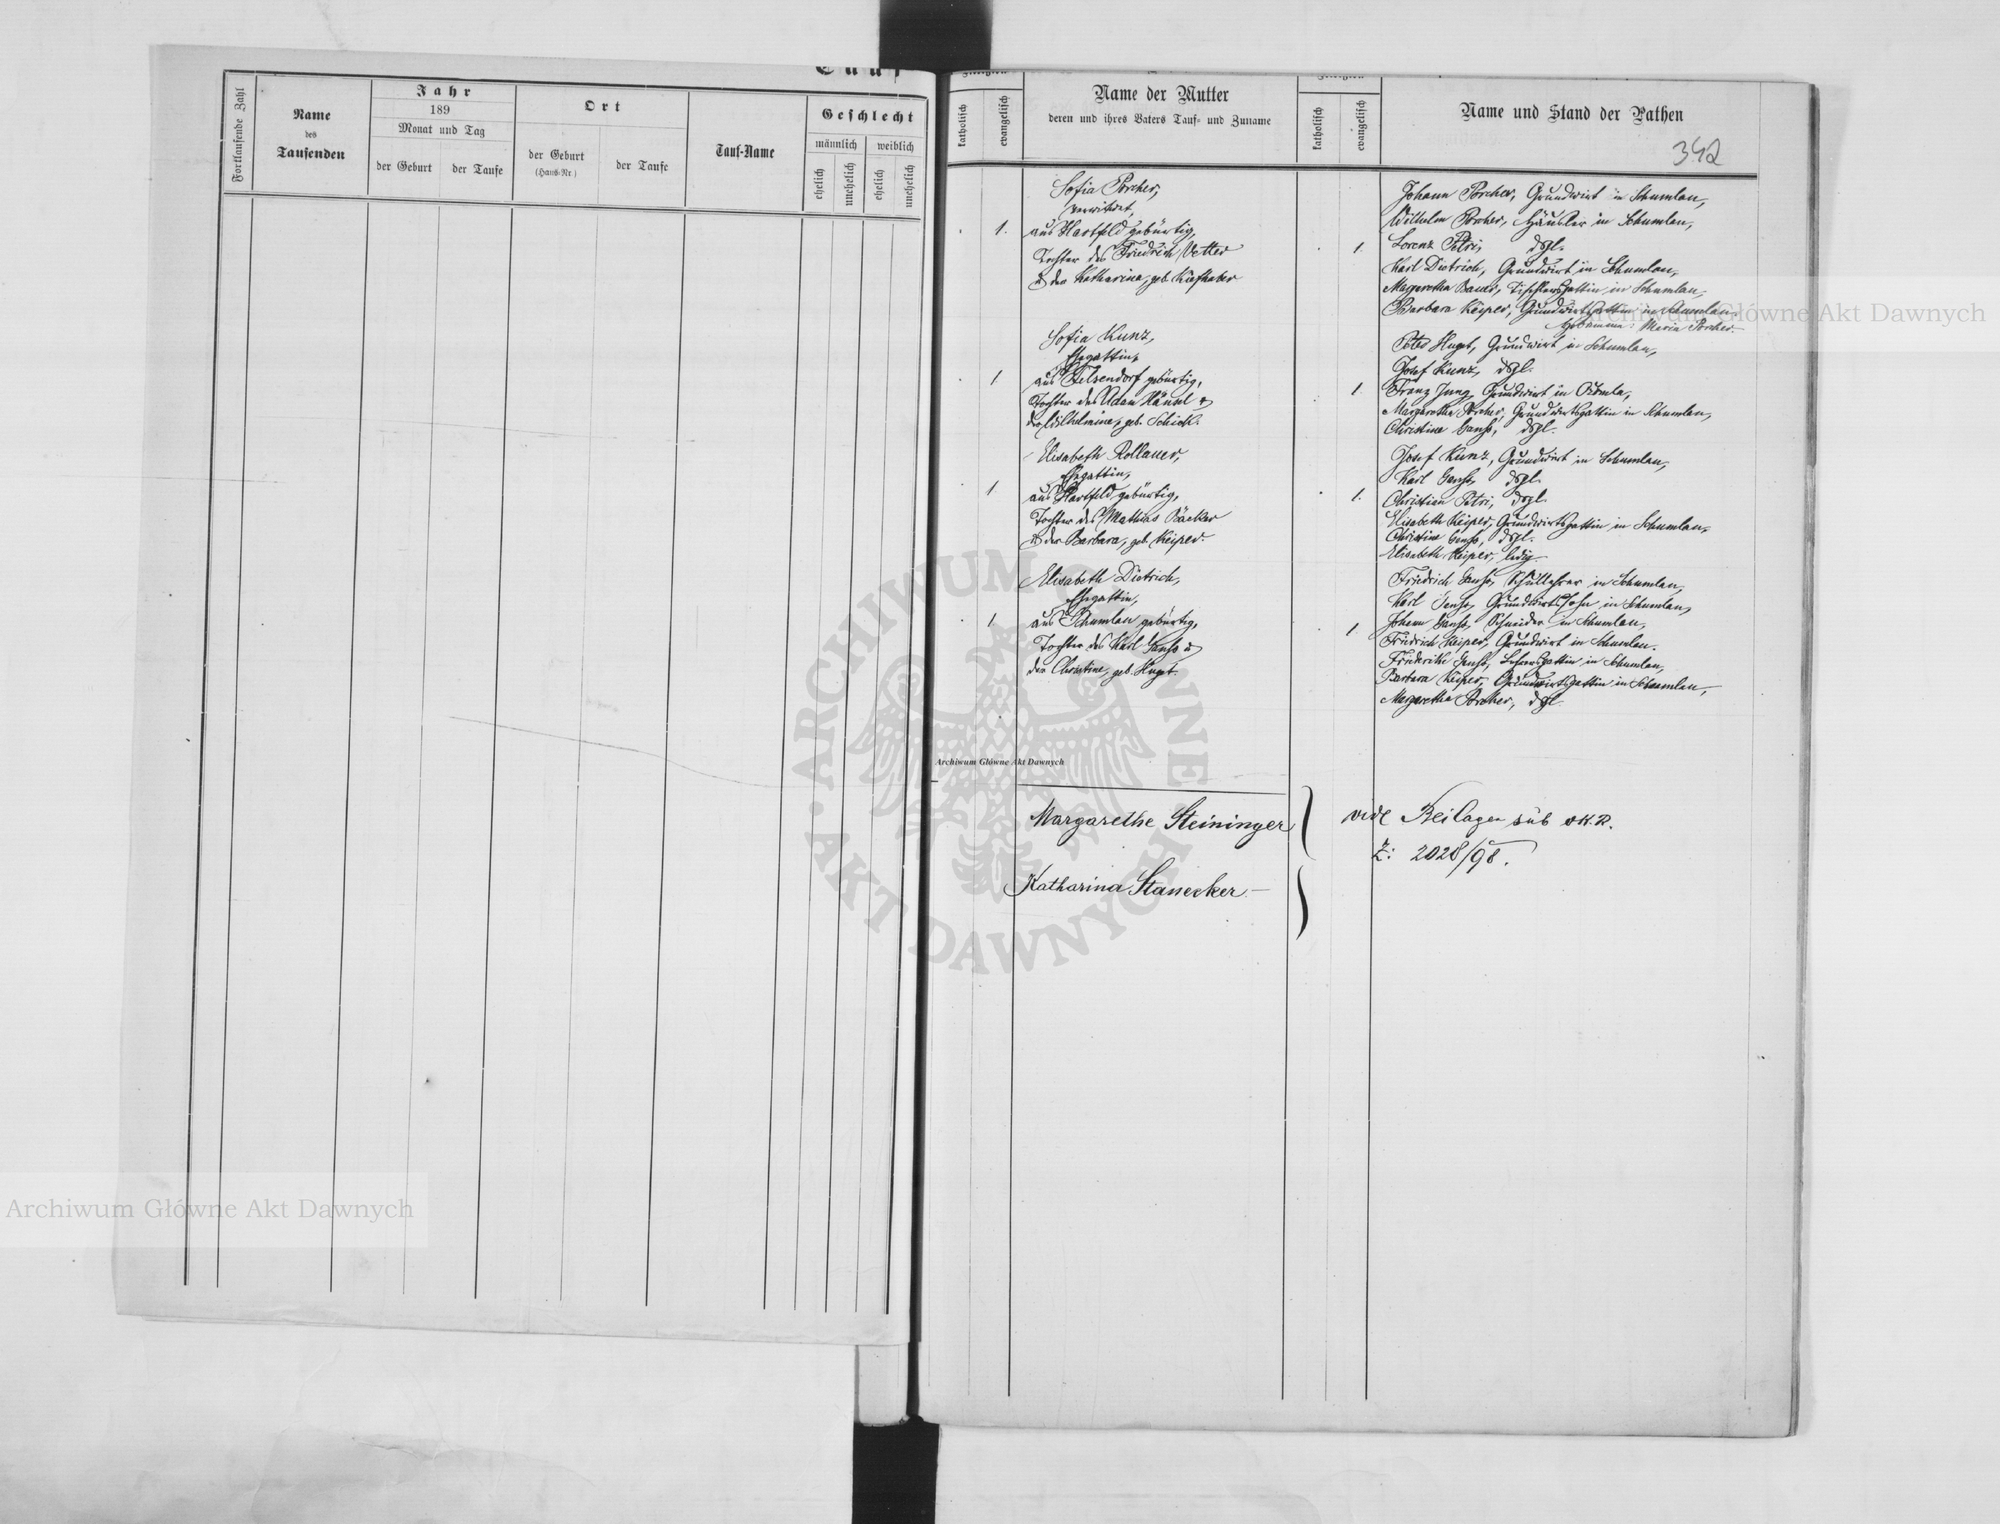 Tauf
Fortlaufende Zahl
Name
des
Taufenden
Jahr
189
Monat und Tag
der Geburt
der Taufe
Ort
der Geburt
(Haus-Nr.)
der Taufe
Tauf-Name
Geschlecht
männlich
weiblich
ehelich
unehelich
ehelich
unehelich
katholisch
evangelisch
Name der Mutter
deren und ihres Vaters Tauf- und Zuname
katholisch
evangelisch
Name und Stand der Pathen
342
Sofia Porcher,
verwitwet,
1. aus Hartfeld gebürtig,
Tochter des Friedrich Vetter
u. der Katharina, geb. Kiefhaber
1
Johann Porcher, Grundwirt in Schumlau,
Wilhelm Porcher, Häusler in Schumlau,
Lorenz Petri, dsgl.
Karl Dietrich, Grundwirt in Schumlau,
Margaretha Bauer, Tischlersgattin in Schumlau,
Barbara Keiper, Grundwirtsgattin in Schumlau.
Hebamme: Maria Porcher.
Sofia Kunz,
Ehegattin,
1 aus Felsendorf gebürtig,
Tochter des Adam Hänsel u.
der Wilhelmine, geb. Schick.
1
Peter Hugel, Grundwirt in Schumlau,
Josef Kunz, dsgl.
Franz Jung, Grundwirt in
Margaretha Porcher, Grundwirtsgattin in Schumlau,
Christine Ganss, dsgl.
Elisabeth Rollauer,
Ehegattin,
1. aus Hartfeld gebürtig,
Tochter des Mathias Bäcker
u. der Barbara, geb. Keiper
1.
Josef Kunz, Grundwirt in Schumlau,
Karl Ganss, dsgl.
Christian Petri, dsgl.
Elisabeth Keiper, Grundwirtsgattin in Schumlau,
Christine Ganss, dsgl.
Elisabeth Keiper, ledig.
Elisabeth Dietrich,
Ehegattin,
1 aus Schumlau gebürtig,
Tochter des Karl Ganss u.
der Christine, geb. Hugel.
1.
Friedrich Ganss, Schullehrer in Schumlau,
Karl Ganss, Grundwirtssohn in Schumlau,
Johann Ganss, Schneider in Schumlau,
Friedrich Keiper, Grundwirt in Schumlau.
Friderike Ganss, Lehrersgattin in Schumlau,
Barbara Keiper, Grundwirtsgattin in Schumlau,
Margaretha Porcher, dsgl.
Margarethe Steininger
Katharina Stanecker
vide Beilagen sub
Z: 2028/98.
Archiwum Główne Akt Dawnych
Archiwum Główne Akt Dawnych
Archiwum Główne Akt Dawnych
ARCHIWUM GŁÓWNE AKT DAWNYCH